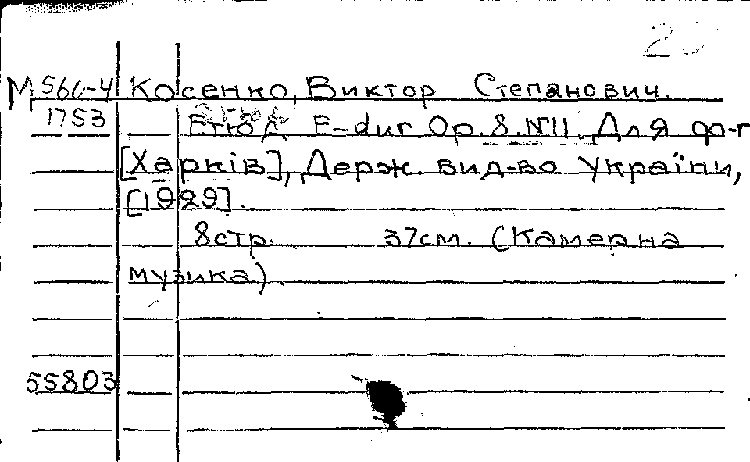 M 566-4 Косенко, Виктор Степанович.
1753 Етюд F-dur Op. 8. №11. Для ф-п
[Харків], Держ. вид-во України,
[1929].
8стр. 37см. (Камерна
музика).
55803